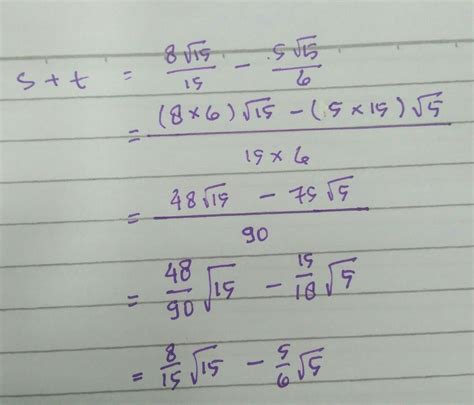 s + t = 8√15/15 - 5√15/6
= (8×6)√15 - (5×15)√5 / 15×6
= 48√15 - 75√5 / 90
= 48/90 √15 - 15/18 √5
= 8/15 √15 - 5/6 √5